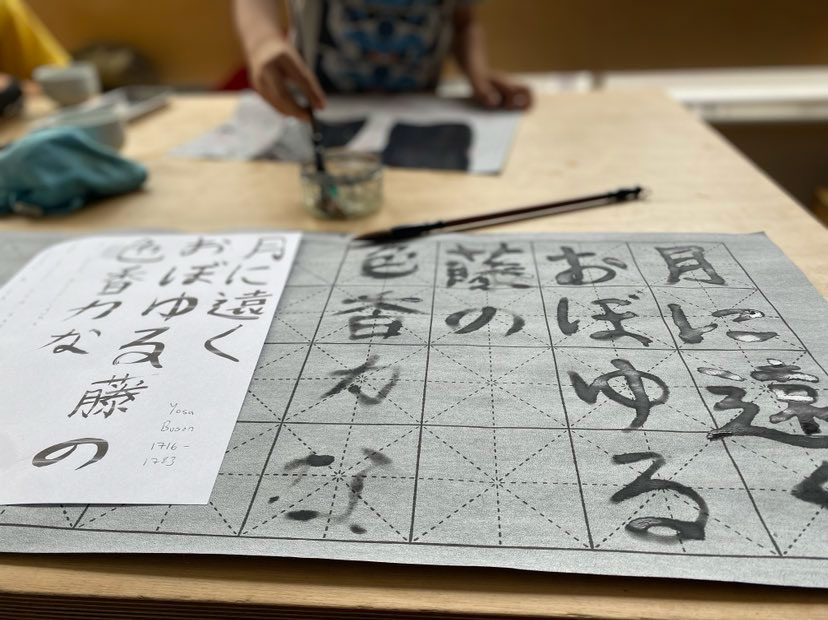 月に遠く
おぼゆる藤の
色香カな
Yosa
Buson
1716-
1783
月に遠く
おぼゆる
藤の
色香カな